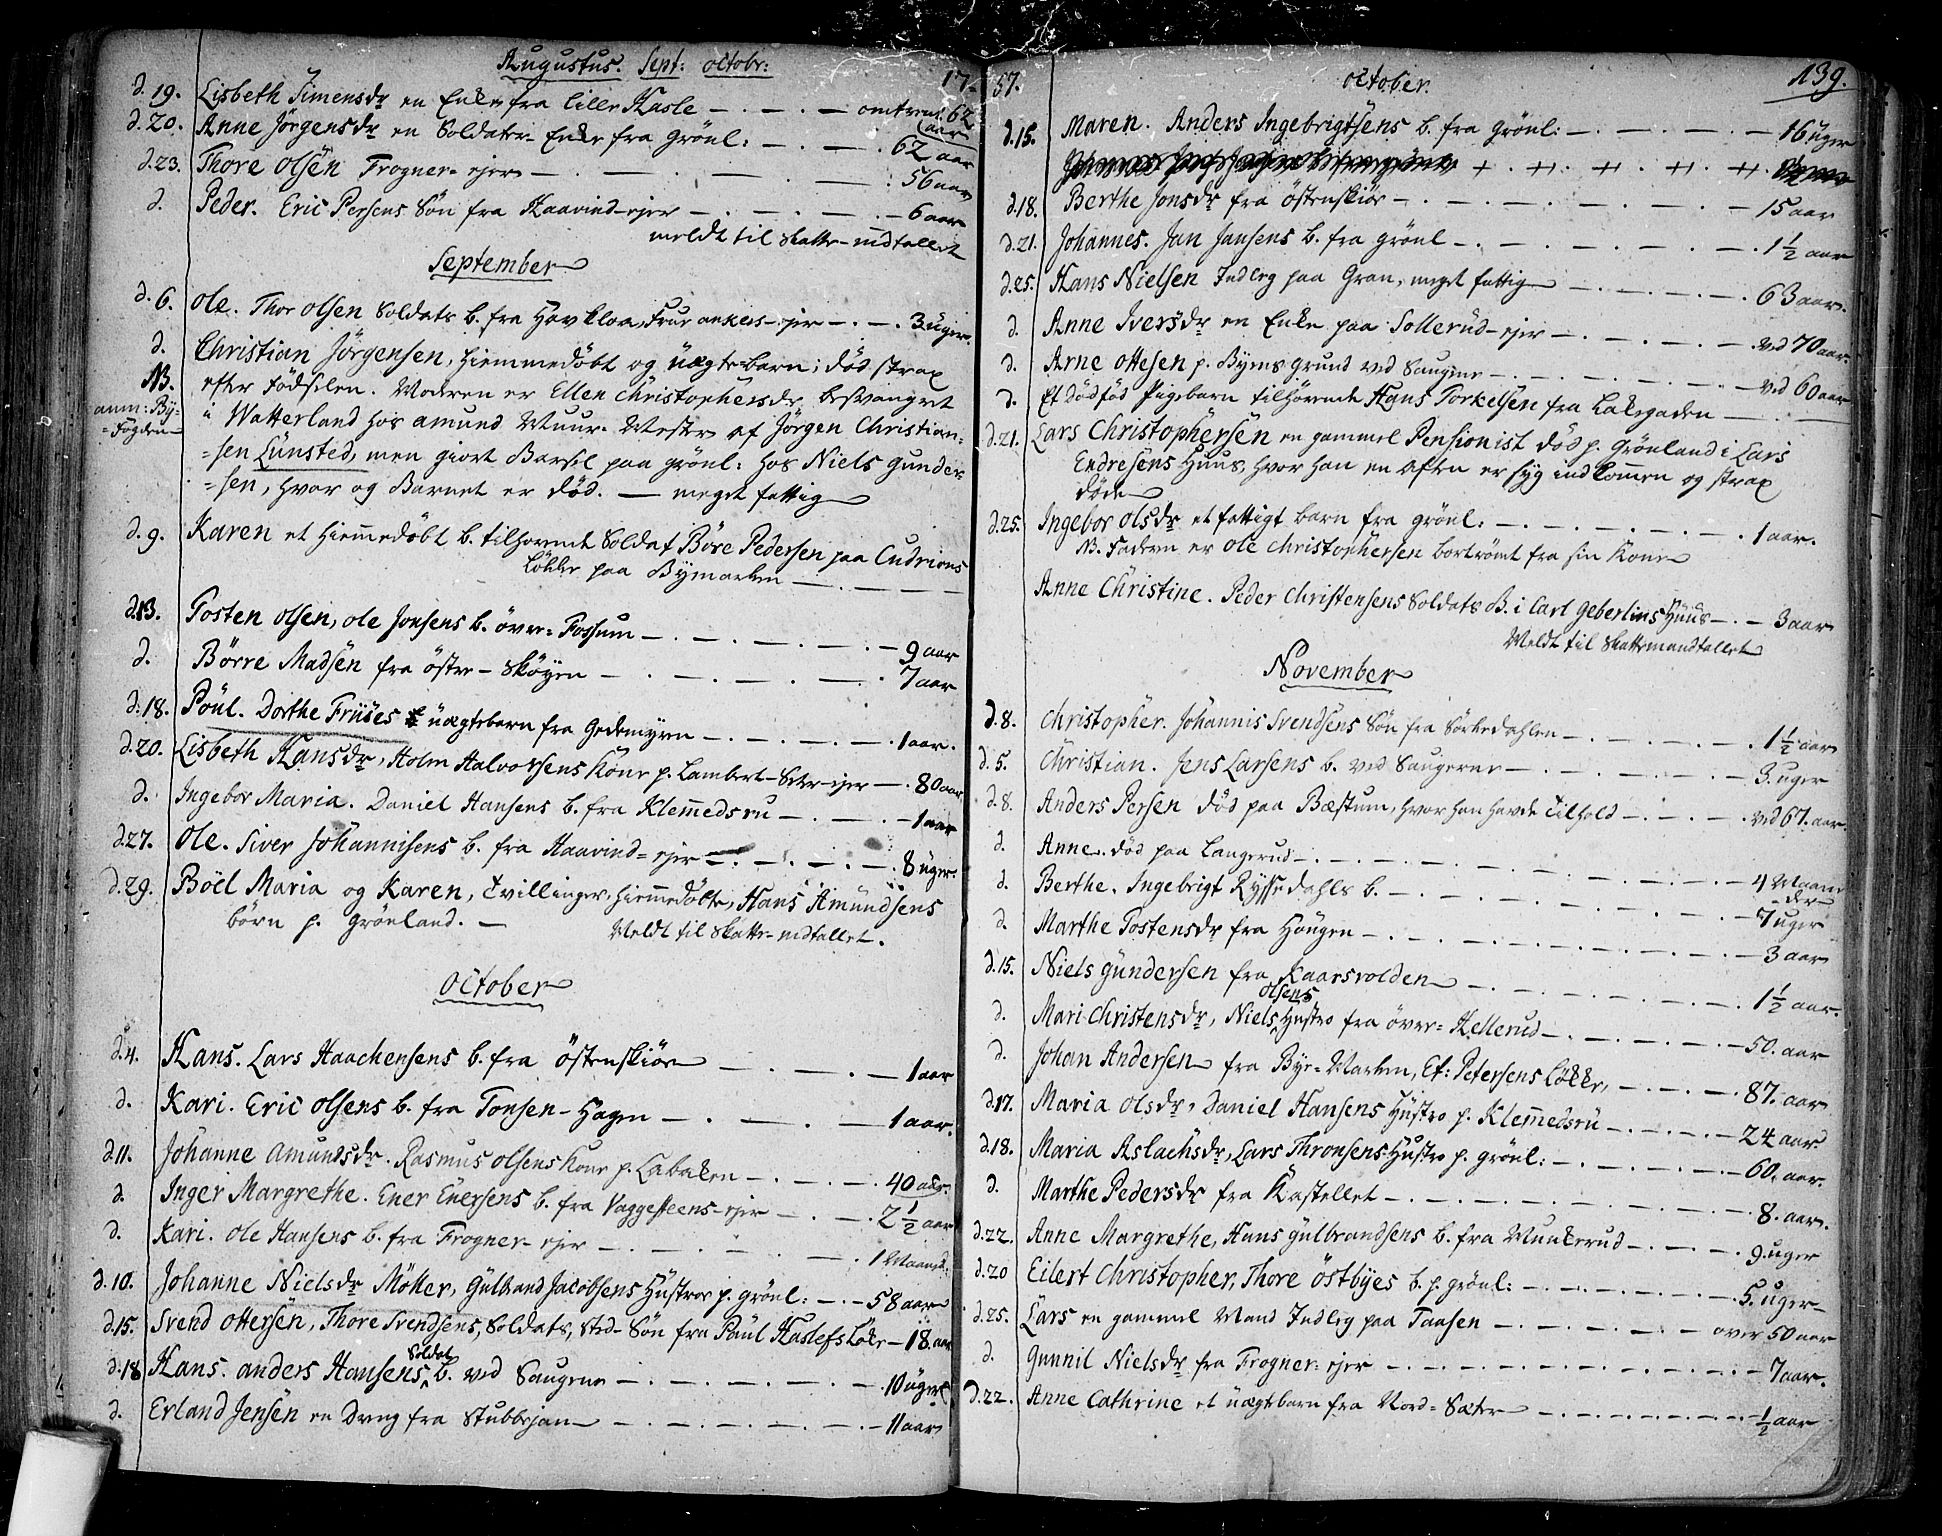 Augustus. Sept: octobr:
17
d. 19. Lisbeth Simensdr en Enke fra lille Hasle — omtrent 62 aar
d. 20. Anne Jörgensdr en Soldater-Enke fra Grönl: — 62 aar
d. 23. Thore Olsen Frogner-ejer — 56 aar
d. Peder. Eric Persens Søn fra Haavind-ejer — 6 aar
meldt til Skatte-mdtallet
September
d. 6. Ole. Thor Olsen Soldats b. fra Havkloa, Frue ankers-ejer — 3 uger.
d. Christian Jörgensen, hiemmedöbt og uægte-barn; död strax
NB. efter födselen. Moderen er Ellen Christophersdr, besvangret
anm: By- i Watterland hos amund Muur-Mester af Jörgen Christian-
=fogden =sen Lünsted, men giort Barsel paa grönl: hos Niels gunder-
=sen, hvor og Barnet er död. — meget fattig
d. 9. Karen et hiemedöbt b. tilhörende Soldat Böre Pedersen paa Cudrions
Lökke paa Bymarken —
d. 13. Tosten Olsen, Ole Jonsens b. över-Fossum — 9 aar
d. Börre Madsen fra östre-Sköyen — 7 aar
d. 18. Poul. Dorthe Friises uægtebarn fra Gedemyren — 1 aar.
d. 20. Lisbeth Hansdr, Holm Halvorsens Kone p. Lambert-Seter-ejer — 80 aar
d. Ingebor Maria. Daniel Hansens b. fra Klemmedsru — 1 aar
d. 27. Ole. Siver Johannisens b. fra Haavind-ejer — 8 uger.
d. 29. Böel Maria og Karen, Tvillinger, hiemedöbte, Hans Amundsens
börn p. Grönland. — Meldt til Skatte-mdtallet.
October
d. 4. Hans. Lars Haachensens b. fra Östenskiör — 1 aar
d. Kari. Eric Olsens b. fra Tonsen-Hagen — 1 aar.
d. 11. Johanne Amundsdr. Rasmus Olsens Kone p. Labaken — 40 aar.
d. Inger Margrethe. Ener Enersens b. fra Vaggesteens-ejer — 2 1/2 aar
d. Kari. Ole Hansens b. fra Frogner-ejer — 1 Maaned.
d. 10. Johanne Nielsdr Möller, Gulbrand Jacobsens Hustroe p. grönl: — 58 aar
d. 15. Svend Ottersen, Thore Svendsens, Soldats, Sted-Sön fra Paul Haslefs Löke — 18. aar
d. 18 Hans. anders Hansens Soldat b. ved Saugene — 10 uger
d. Erland Jensen en Dreng fra Stubbejan — 11 aar
57.
October.
139.
d. 15. Maren. Anders Ingebrigtsens b. fra grönl: — 16 uger
d. 18. Berthe Jonsdr fra Östenskiör — 15 aar
d. 21. Johannes. Jan Jansens b. fra grönl — 1 1/2 aar
d. 25. Hans Nielsen Inderg paa Gran, meget fattig — 63 aar.
d. Anne Iversdr en Enke paa Sollerud-ejer — ved 70 aar.
d. Arne Ottesen p. Byens grund ved Saugene — ved 60 aar
d. Et dödföd Pigebarn tilhörende Hans Torkelsen fra Laksgaden —
d. 21. Lars Christophersen en gammel Pensionist död p. Grönland i Lars
Endresens Huus, hvor han en aften er syg indkommen og strax
döde
d. 25. Ingebor Olsdr et fattigt barn fra grönl: — 1 aar.
NB. Faderen er Ole Christophersen bortrömt fra sin Kone
Anne Christine. Peder Christensens Soldats B. i Carl Geberlins Huus — 3 aar
Meldt til Skattemandtallet
November
d. 8. Christopher. Johannis Svendsens Søn fra Sörkedahlen — 1 1/2 aar
d. 5. Christian. Jens Larsens b. ved Saugerne — 3. uger
d. 8. Anders Persen död paa Bæstum, hvor han havde Tilhold — ved 67. aar.
d. Anne. död paa Langerud — 4 Maane-
der
d. Berthe. Ingebrigt Ryssedahls b. — 7 uger
d. Marthe Tostensdr fra Höugen — 3 aar
d. 15. Niels Gundersen fra Kaarsvolden — 1 1/2 aar.
d. Mari Christensdr, Niels Olsens Hustro fra över-Kellerud — 50. aar
d. Johan Andersen fra Bye-Marken, Et: Petersens Lökke, — 87. aar
d. 17. Maria Olsdr, Daniel Hansens Hustro p. Klemmedsru — 24 aar
d. 18. Maria Aslachsdr, Lars Thronsens Hustro p. Grönl: — 60. aar.
d. Marthe Pedersdr fra Kastellet — 8. aar.
d. 22. Anne Margrethe, Hans Gulbrandsens b. fra Munkerud — 9. uger
d. 20 Eilert Christopher, Thore Östbyes b. p. grönl: — 5. uger
d. 25. Lars en gammel Mand Inderg paa Taasen — over 50 aar
d. Gunnil Nielsdr fra Frogner-ejer — 7 aar.
d. 22. Anne Cathrine et uægtebarn fra Nord-Sæter — 1/2 aar